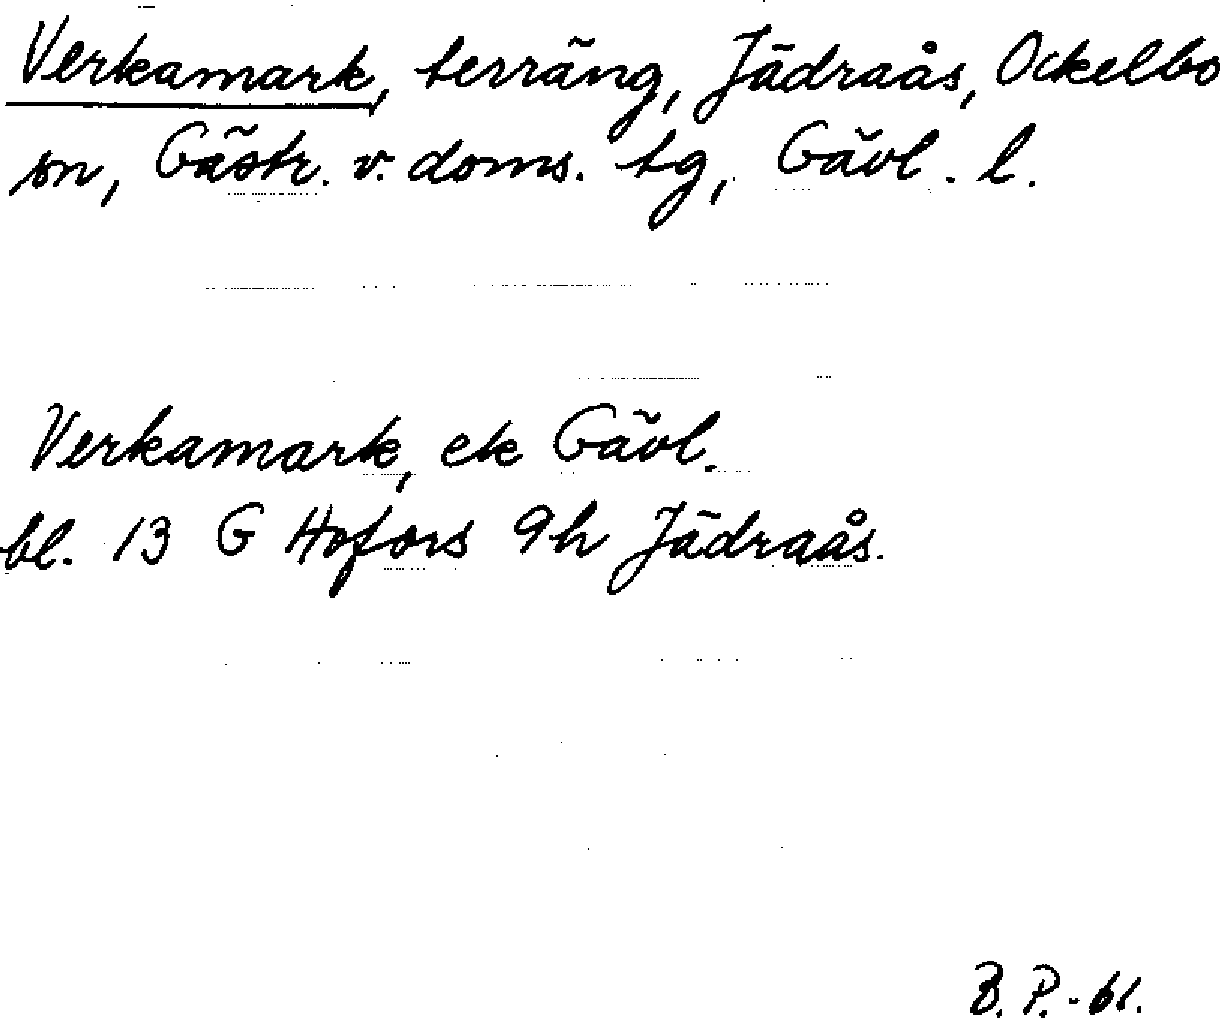 Verkamark, terräng, Jädraås, Ockelbo
sn, Gästr. v. doms. tg, Gävl. l.
Verkamark, ek Gävl.
bl. 13 G Hofors 9h Jädraås.
B. P. - 61.